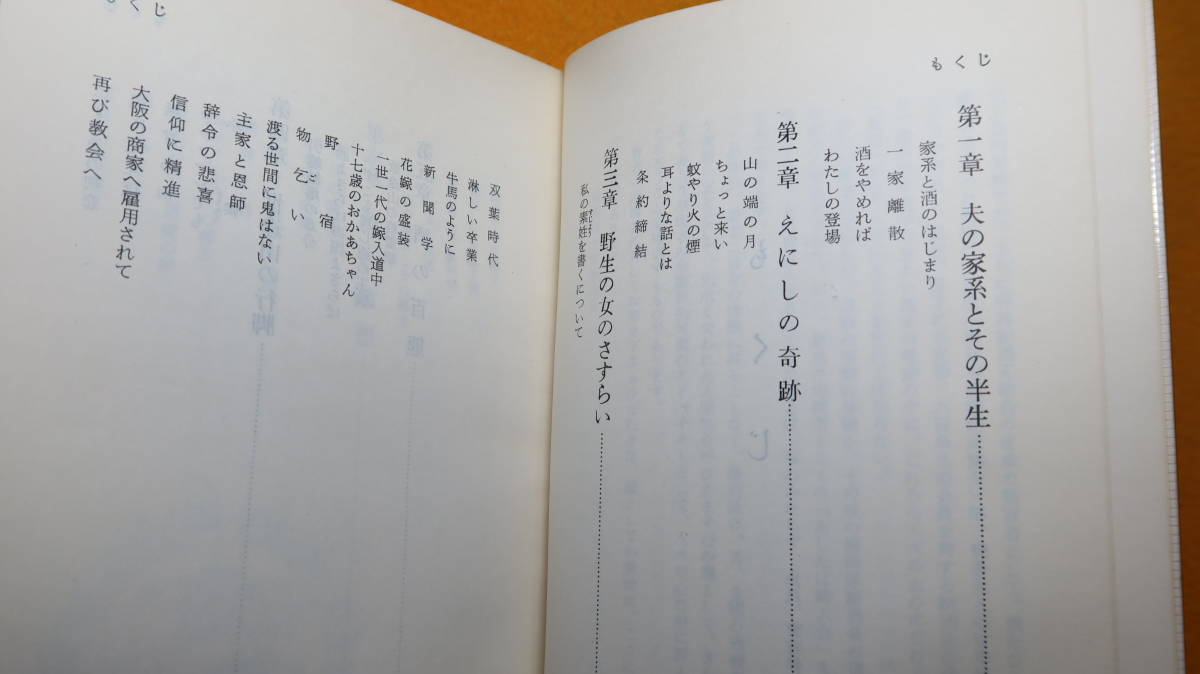 もくじ
第一章 夫の家系とその半生
家系と酒のはじまり
一家離散
酒をやめれば
わたしの登場
第二章 えにしの奇跡
山の端の月
ちょっと来い
蚊やり火の煙
耳よりな話とは
条約締結
第三章 野生の女のさすらい
私の素姓を書くについて
双葉時代
淋しい卒業
牛馬のように
新聞学
花嫁の盛装
一世一代の嫁入道中
十七歳のおかあちゃん
野宿
物乞い
渡る世間に鬼はない
主家と恩師
辞令の悲喜
信仰に精進
大阪の商家へ雇用されて
再び教会へ
もくじ